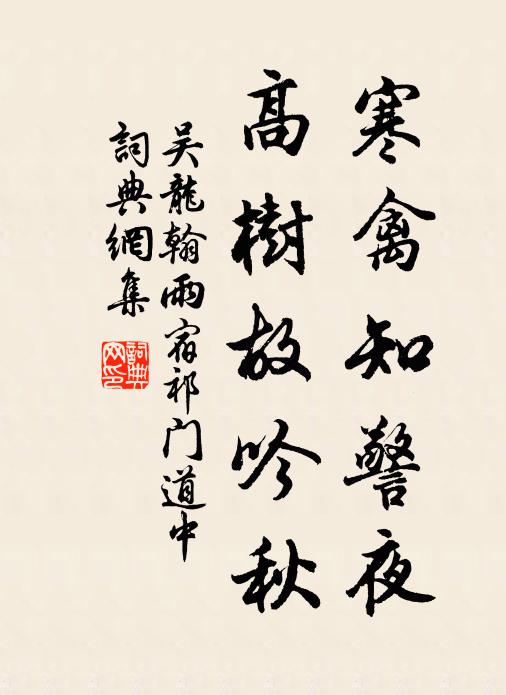 寒禽知警夜
高樹故吟秋
吴龍翰雨宿祁门道中
詞典網集
詞典網印